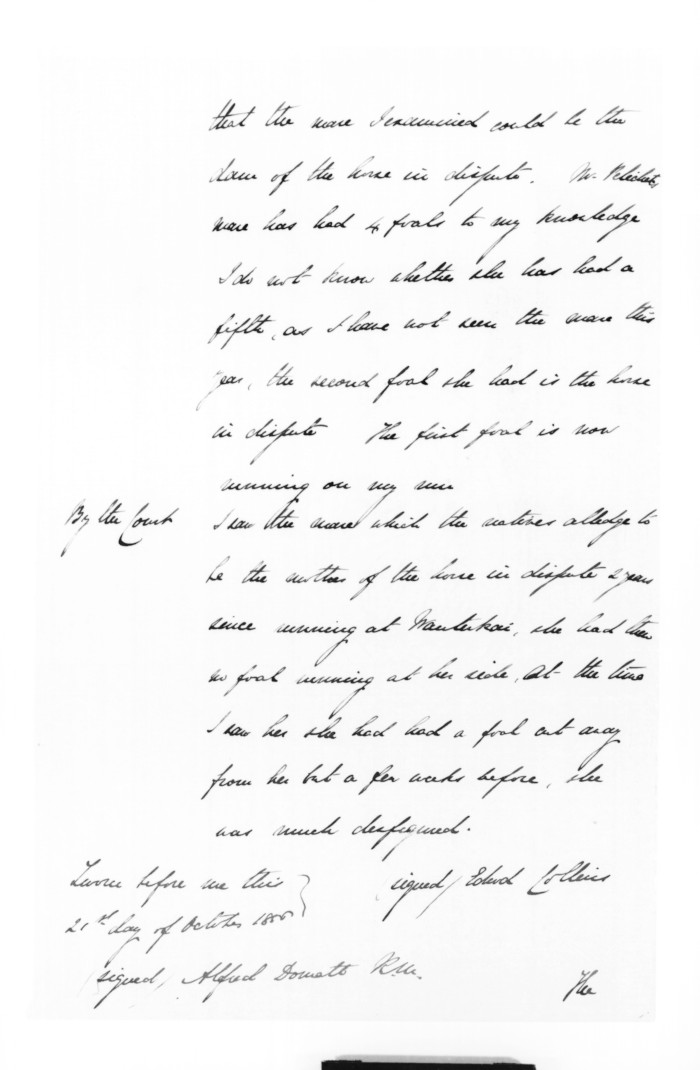 that the mare I examined could be the
dam of the horse in dispute. Mr.
mare has had 4 foals to my knowledge
I do not know whether she has had a
fifth, as I have not seen the mare this
year, the second foal she had is the horse
in dispute The first foal is now
running on my run
By the Court I saw the mare which the natives alledge to
be the mother of the horse in dispute 2 years
since running at, she had then
no foal running at her side, At the time
I saw her she had had a foal cut away
from her but a few weeks before, she
was much disfigured.
Sworn before me this (signed) Edwd Collins
21st day of October
(signed) Alfred Domett R.M.
The